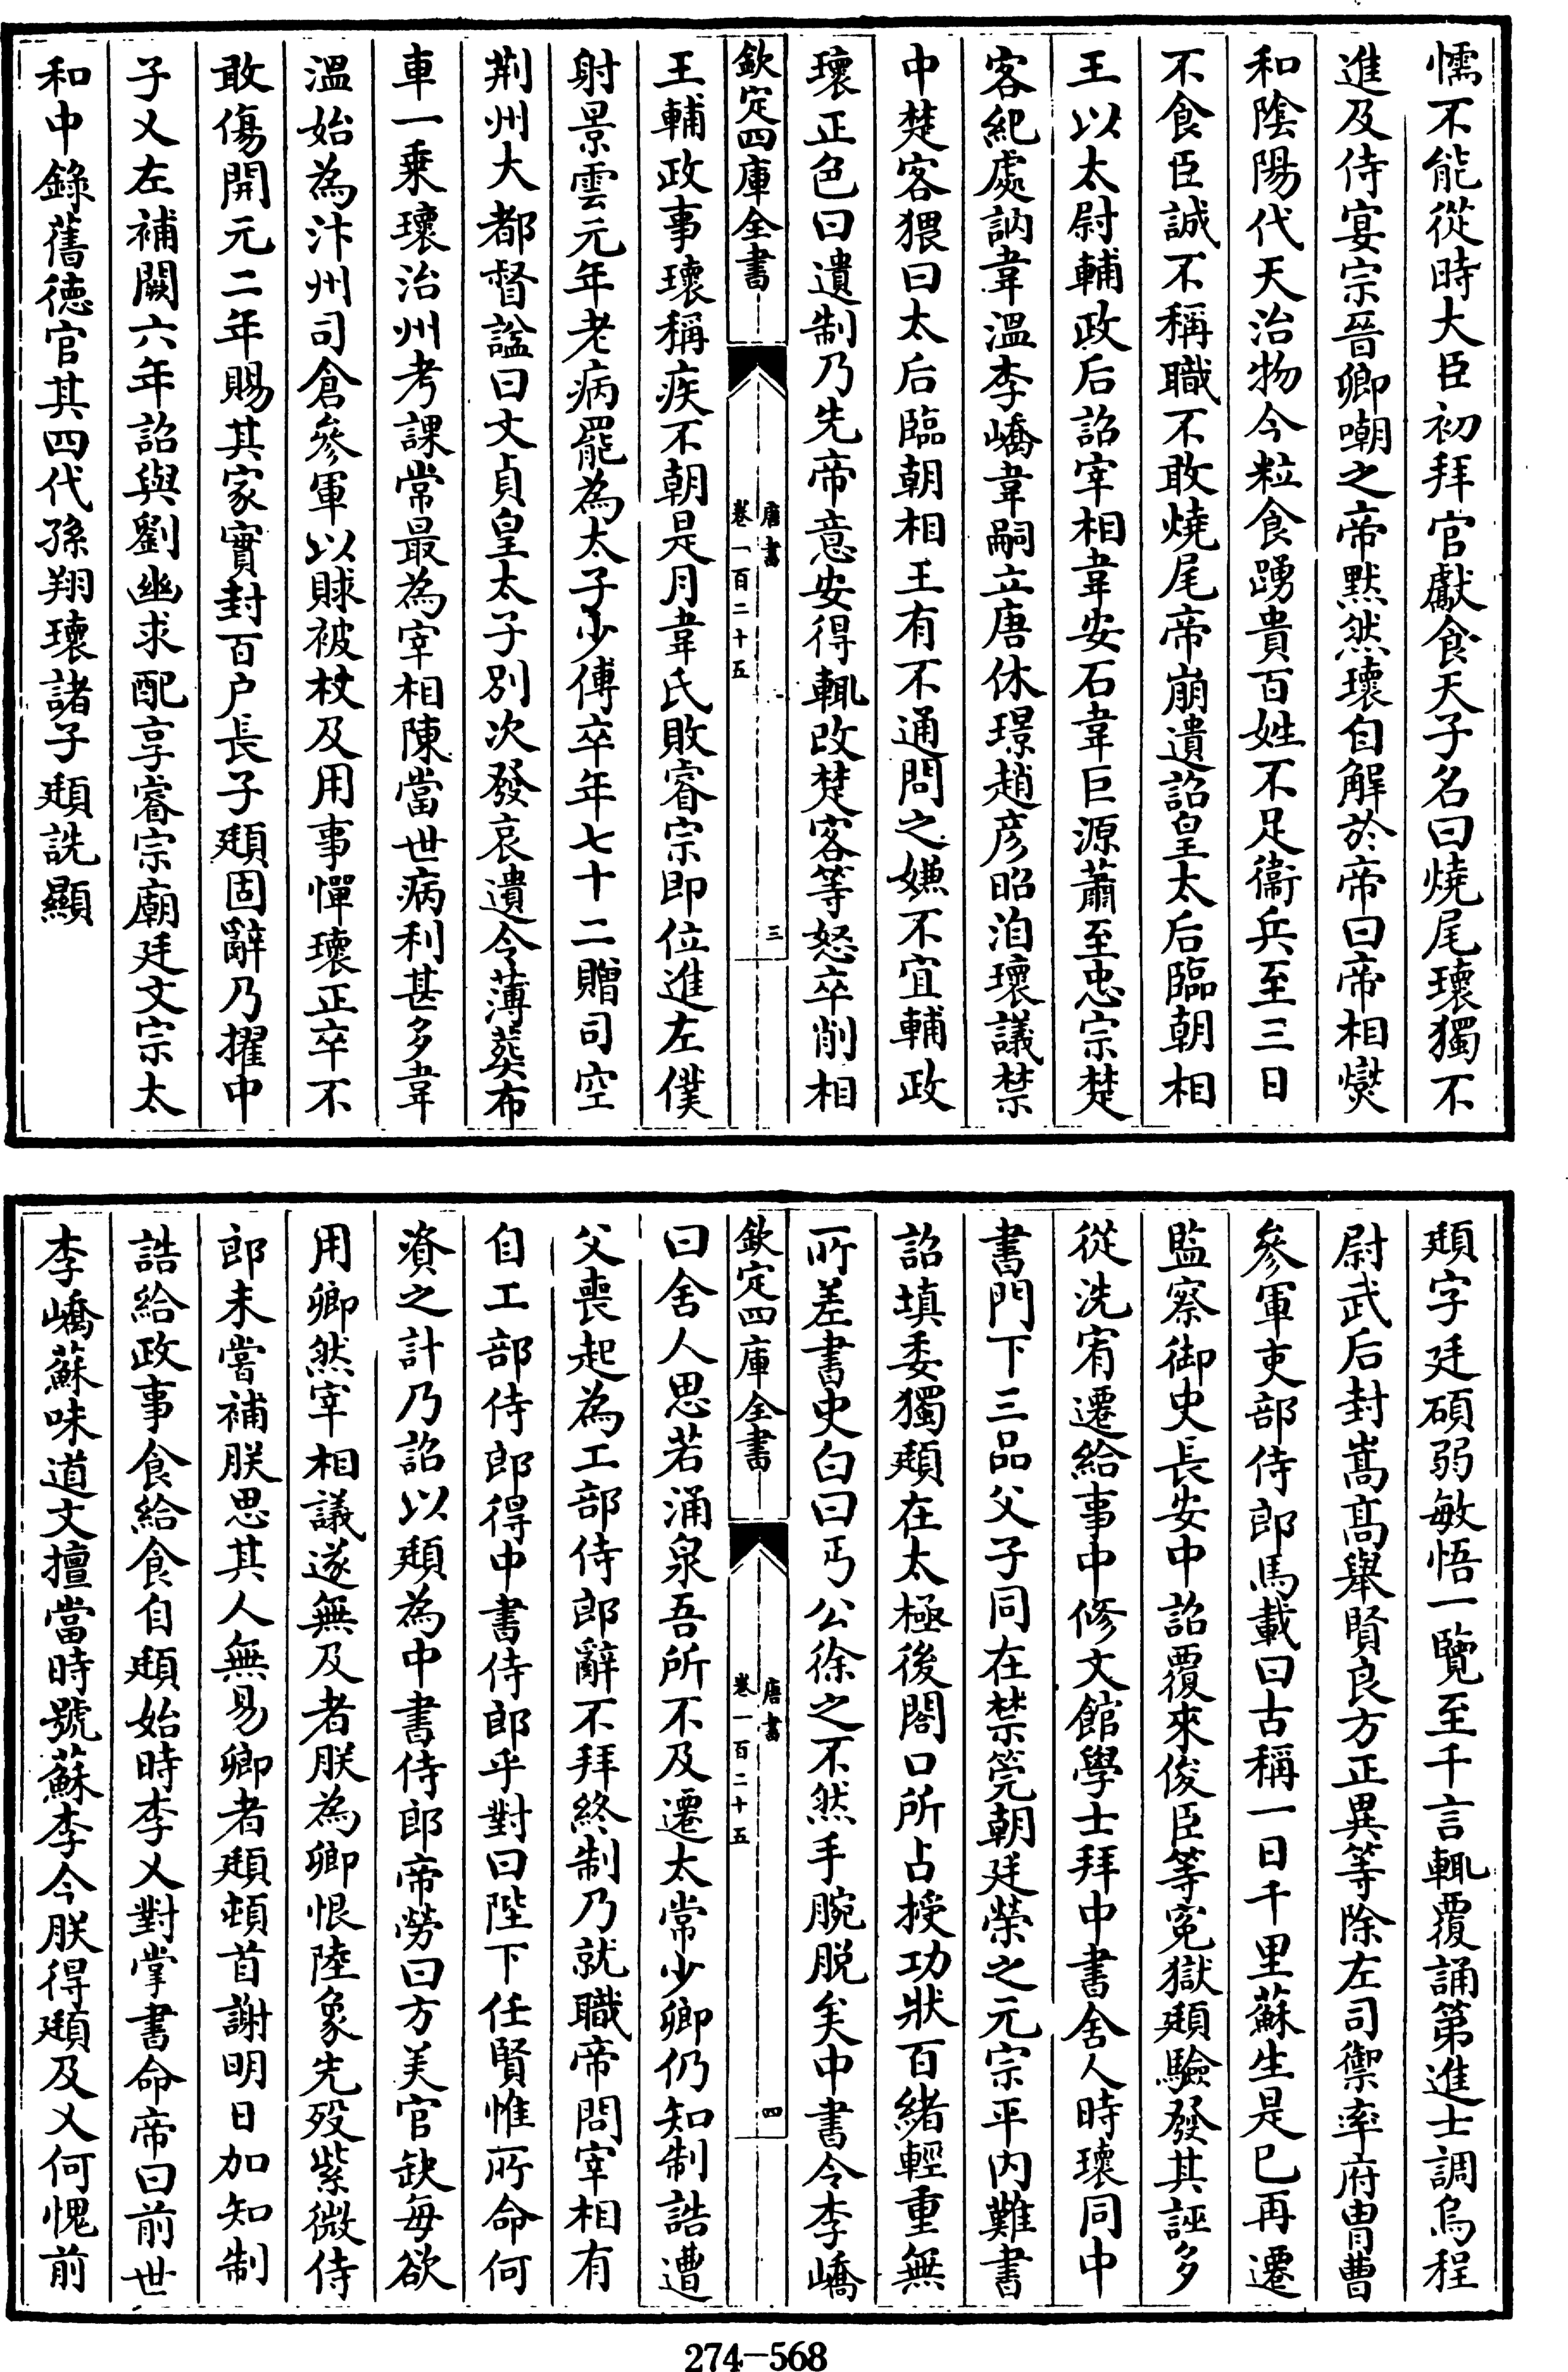 懦不能從時大臣初拜官獻食天子名曰燒尾瓌獨不
進及侍宴宗晉卿嘲之帝黙然瓌自解於帝曰帝相爕
和陰陽代天治物今粒食踴貴百姓不足衞兵至三日
不食臣誠不稱職不敢燒尾帝崩遺詔皇太后臨朝相
王以太尉輔政后詔宰相韋安石韋巨源蕭至忠宗楚
客紀處訥韋溫李嶠韋嗣立唐休璟趙彦昭洎瓌議禁
中楚客猥曰太后臨朝相王有不通問之嫌不宜輔政
瓌正色曰遺制乃先帝意安得輒改楚客等怒卒削相
欽定四庫全書
唐書
卷一百二十五
三
王輔政事瓌稱疾不朝是月韋氏敗睿宗即位進左僕
射景雲元年老病罷為太子少傅卒年七十二贈司空
荆州大都督諡曰文貞皇太子別次發哀遺令薄葬布
車一乗瓌治州考課常最為宰相陳當世病利甚多韋
溫始為汴州司倉參軍以賕被杖及用事憚瓌正卒不
敢傷開元二年賜其家實封百户長子頲固辭乃擢中
子乂左補闕六年詔與劉幽求配享睿宗廟廷文宗太
和中錄舊徳官其四代孫翔瓌諸子頲詵顯
頲字廷碩弱敏悟一覽至千言輒覆誦第進士調烏程
尉武后封嵩髙舉賢良方正異等除左司禦率府胄曹
參軍吏部侍郎馬載曰古稱一日千里蘇生是已再遷
監察御史長安中詔覆來俊臣等冤獄頲驗發其誣多
從洗宥遷給事中修文館學士拜中書舍人時瓌同中
書門下三品父子同在禁筦朝廷榮之元宗平内難書
詔填委獨頲在太極後閤口所占授功狀百緒輕重無
所差書史白曰丐公徐之不然手腕脱矣中書令李嶠
欽定四庫全書
唐書
卷一百二十五
四
曰舍人思若涌泉吾所不及遷太常少卿仍知制誥遭
父喪起為工部侍郎辭不拜終制乃就職帝問宰相有
自工部侍郎得中書侍郎乎對曰陛下任賢惟所命何
資之計乃詔以頲為中書侍郎帝勞曰方美官缺每欲
用卿然宰相議遂無及者朕為卿恨陸象先歿紫微侍
郎未嘗補朕思其人無易卿者頲頓首謝明日加知制
誥給政事食給食自頲始時李乂對掌書命帝曰前世
李嶠蘇味道文擅當時號蘇李今朕得頲及乂何愧前
274-568